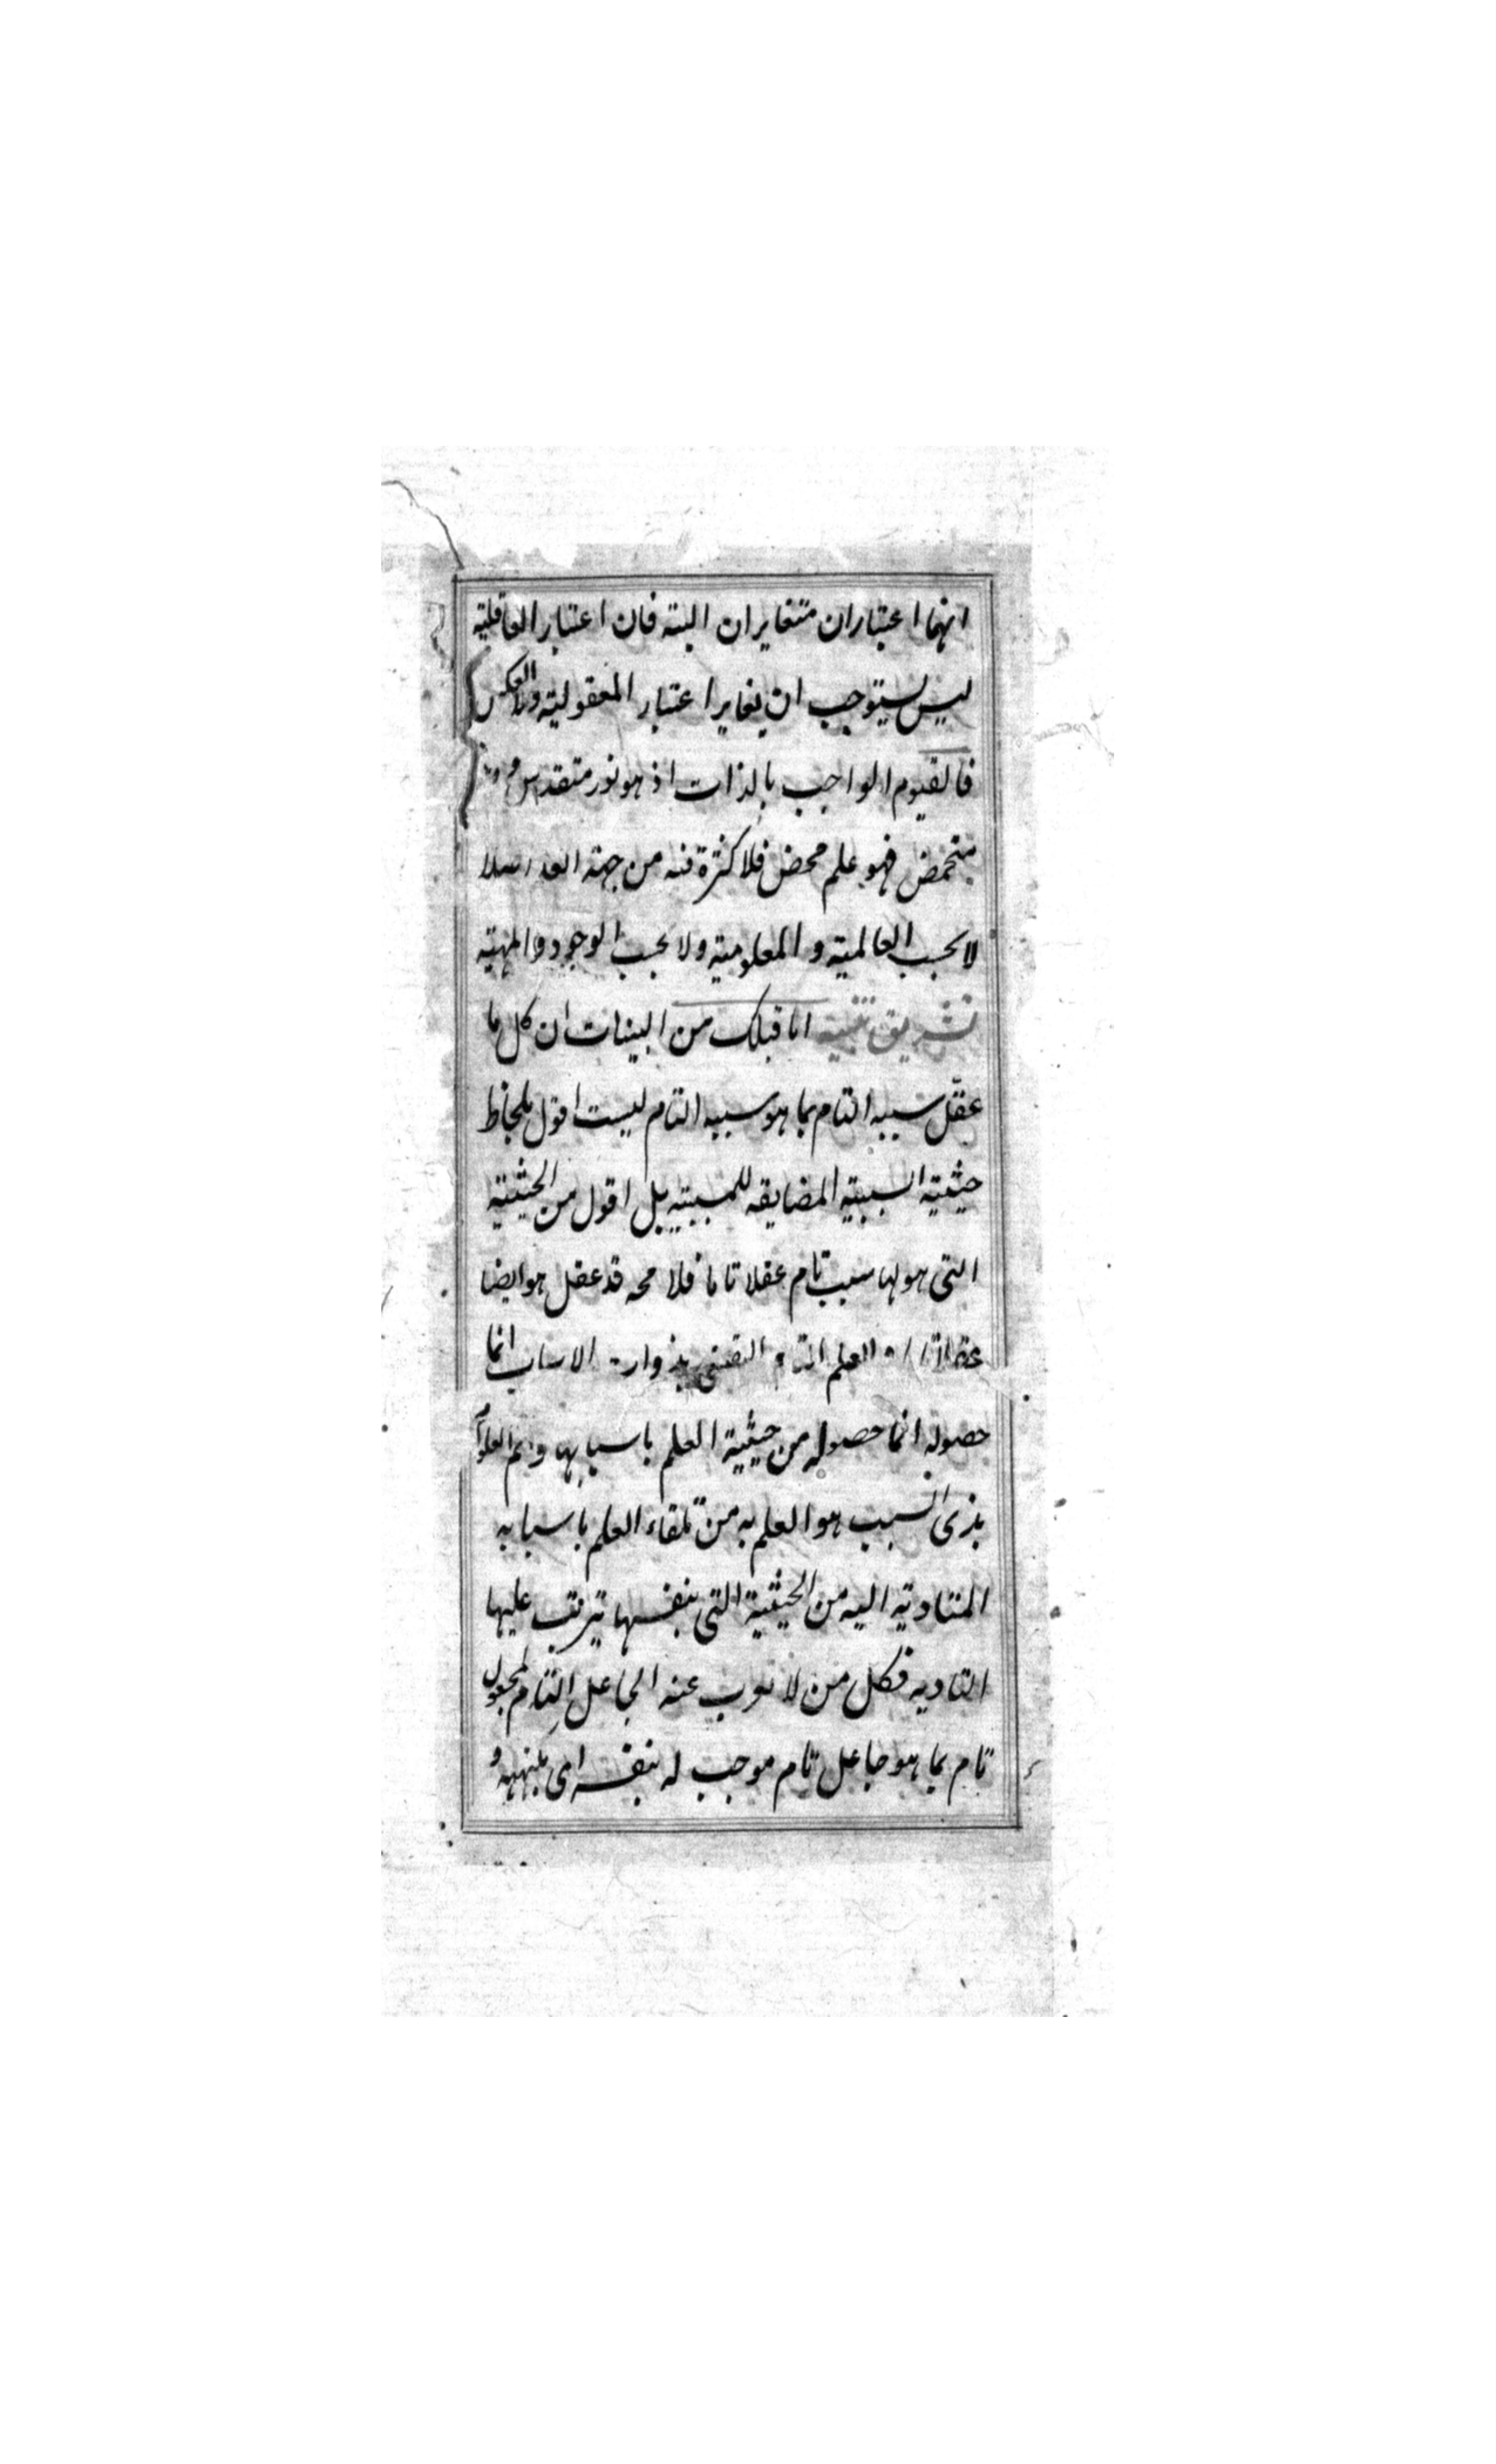 انهما اعتباران متغايران البته فان اعتبار العاقلية
ليس يستوجب ان يغاير اعتبار المعقولية وبالعكس
فالقيوم الواجب بالذات اذ هو نور متقدس
متمحض فهو علم محض فلا كثرة فيه من جهة
لا بحسب العالمية و المعلومية ولا بحسب الوجود والمهية
تشريق اما قبلك من البينات ان كل ما
عقل سببه التام بما هو سببه التام ليست اقول بلحاظ
حيثية السببية المضايفه للمسببية بل اقول من الحيثية
التى هو لها سبب تام عقلا تاما فلا محه قد عقل هو ايضا
العلم الاسباب انما
حصوله انما حصوله من حيثية العلم باسبابها
بذى السبب هو العلم به من تلقاء العلم باسبابه
المتاديه اليه من الحيثية التى بنفسها يترتب عليها
التاديه فكل من لا عنه الجاعل التام لمجعول
تام بما هو جاعل تام موجب له بنفسه اى